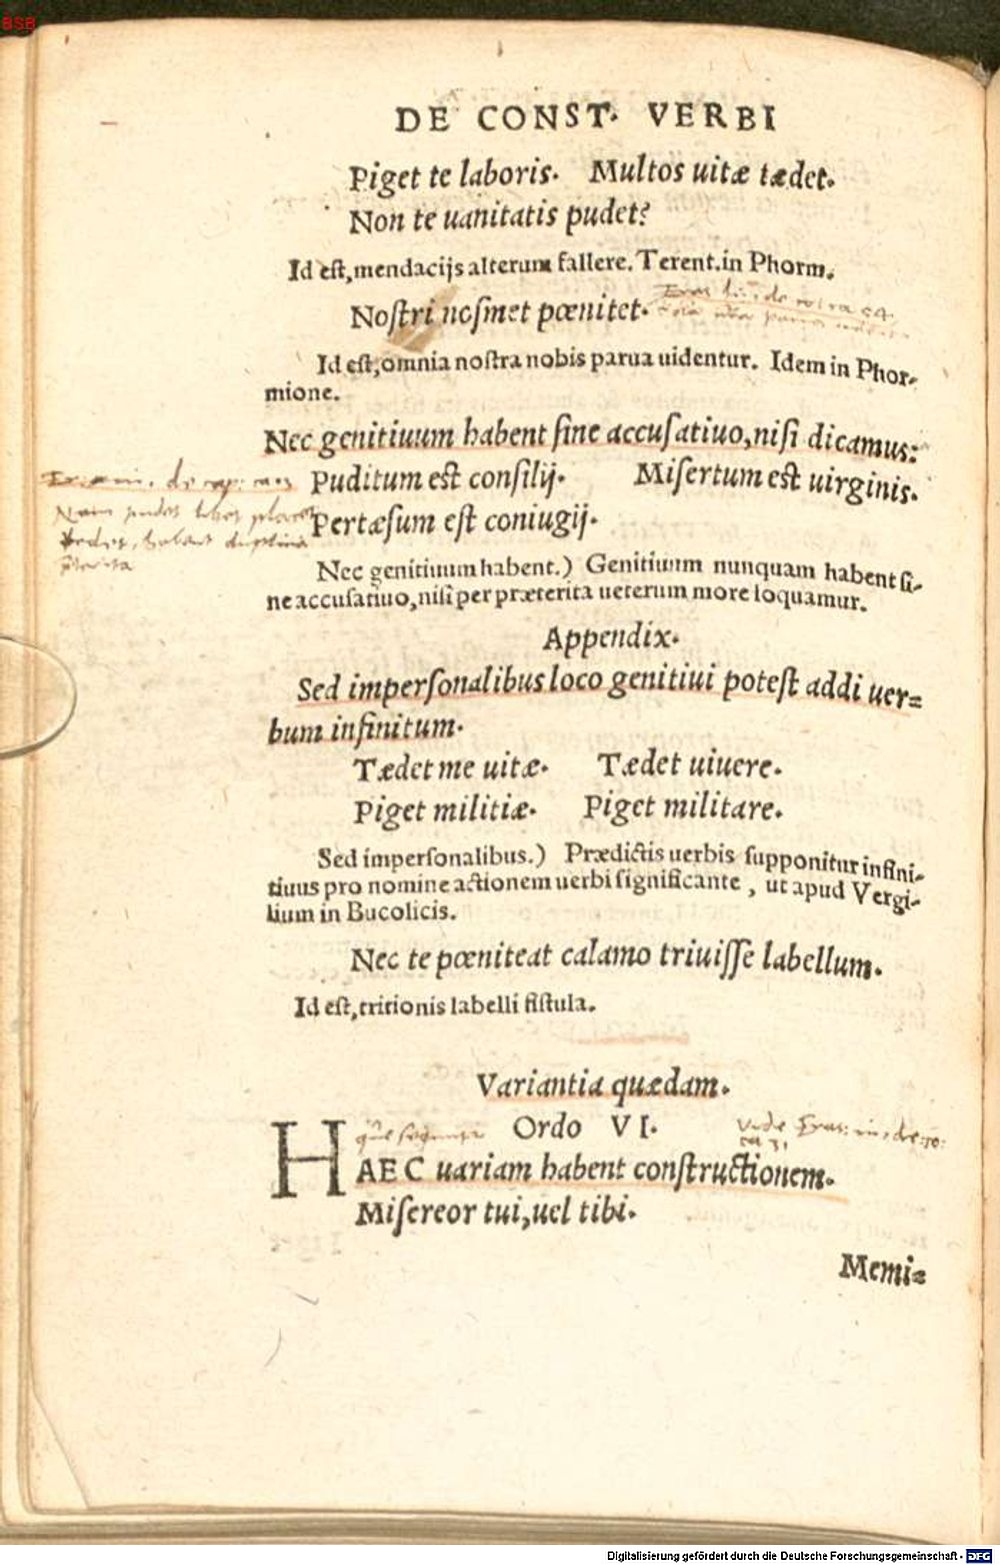 BSB
DE CONST. VERBI
Piget te laboris. Multos uitæ tædet.
Non te uanitatis pudet?
Id est, mendacijs alterum fallere. Terent. in Phorm.
Nostri nosmet pœnitet.
Id est, omnia nostra nobis parua uidentur. Idem in Phor-
mione.
Nec genitiuum habent sine accusatiuo, nisi dicamus:
Puditum est consilij. Misertum est uirginis.
Nam pudet libet placet
Pertæsum est coniugij.
Nec genitiuum habent.) Genitiuum nunquam habent si-
ne accusatiuo, nisi per præterita ueterum more loquamur.
Appendix.
Sed impersonalibus loco genitiui potest addi uer=
bum infinitum.
Tædet me uitæ. Tædet uiuere.
Piget militiæ. Piget militare.
Sed impersonalibus.) Prædictis uerbis supponitur infini-
tiuus pro nomine actionem uerbi significante, ut apud Vergi-
lium in Bucolicis.
Nec te pœniteat calamo triuisse labellum.
Id est, tritionis labelli fistula.
Variantia quædam.
Ordo VI.
Vide Eras:
HAEC uariam habent constructionem.
Misereor tui, uel tibi.
Memi=
Digitalisierung gefördert durch die Deutsche Forschungsgemeinschaft - DFG